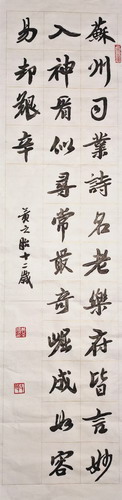 蘇州司業詩名老樂府皆言妙
入神看似尋常最奇崛成如容
易却艱辛
黃立彬十二歲